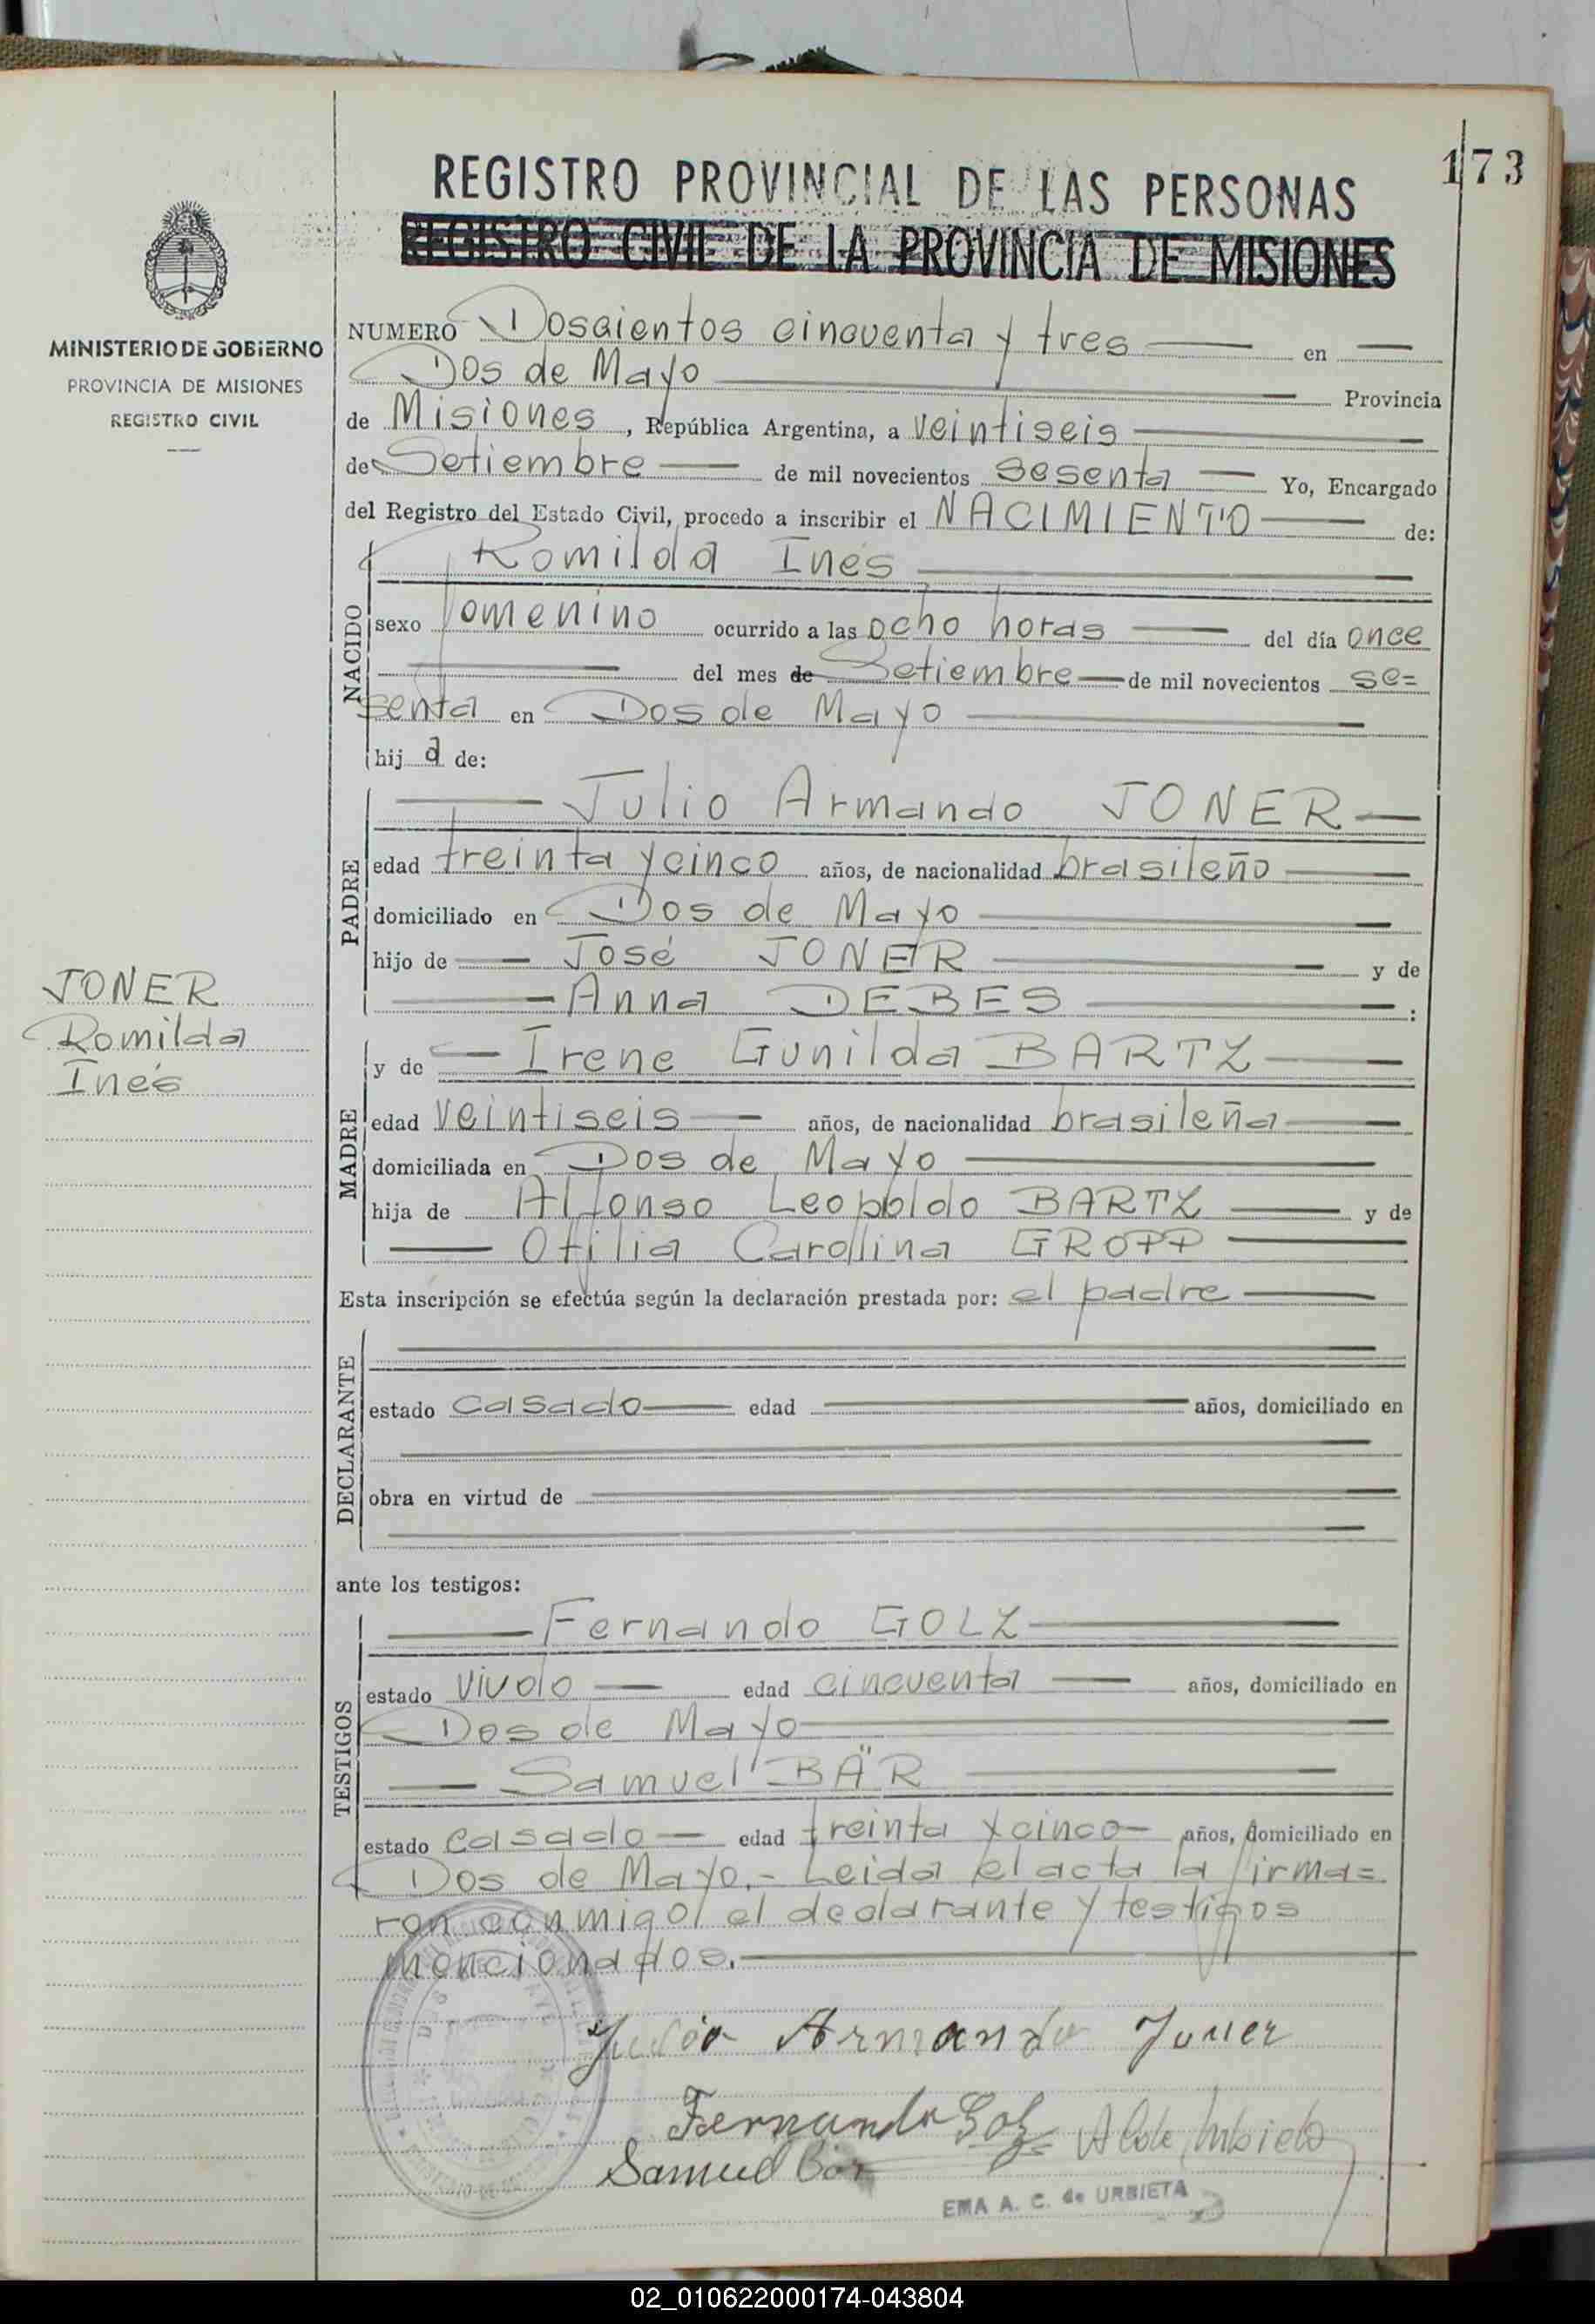 173
REGISTRO PROVINCIAL DE LAS PERSONAS
REGISTRO CIVIL DE LA PROVINCIA DE MISIONES
MINISTERIO DE GOBIERNO
PROVINCIA DE MISIONES
REGISTRO CIVIL
NUMERO Doscientos cincuenta y tres en
Dos de Mayo Provincia
de Misiones, República Argentina, a veintiseis
de Setiembre de mil novecientos sesenta Yo, Encargado
del Registro del Estado Civil, procedo a inscribir el NACIMIENTO de:
NACIDO
Romilda Inés
sexo femenino ocurrido a las ocho horas del día once
del mes de Setiembre de mil novecientos se=
senta en Dos de Mayo
hija de:
PADRE
Julio Armando JONER
edad treinta y cinco años, de nacionalidad brasileño
domiciliado en Dos de Mayo
hijo de José JONER y de
Anna DEBES :
JONER
Romilda
Inés
MADRE
y de Irene Gunilda BARTZ
edad veintiseis años, de nacionalidad brasileña
domiciliada en Dos de Mayo
hija de Alfonso Leopoldo BARTZ y de
Otilia Carolina GROPP
Esta inscripción se efectúa según la declaración prestada por: el padre
DECLARANTE
estado casado edad años, domiciliado en
obra en virtud de
ante los testigos:
TESTIGOS
Fernando GOLZ
estado viudo edad cincuenta años, domiciliado en
Dos de Mayo
Samuel BÄR
estado casado edad treinta y cinco años, domiciliado en
Dos de Mayo.- Leida el acta la firma=
ron conmigo el declarante y testigos
mencionados.
Julio Armando Joner
Fernando Golz
Samuel Bär
EMA A. C. de URBIETA
02_010622000174-043804